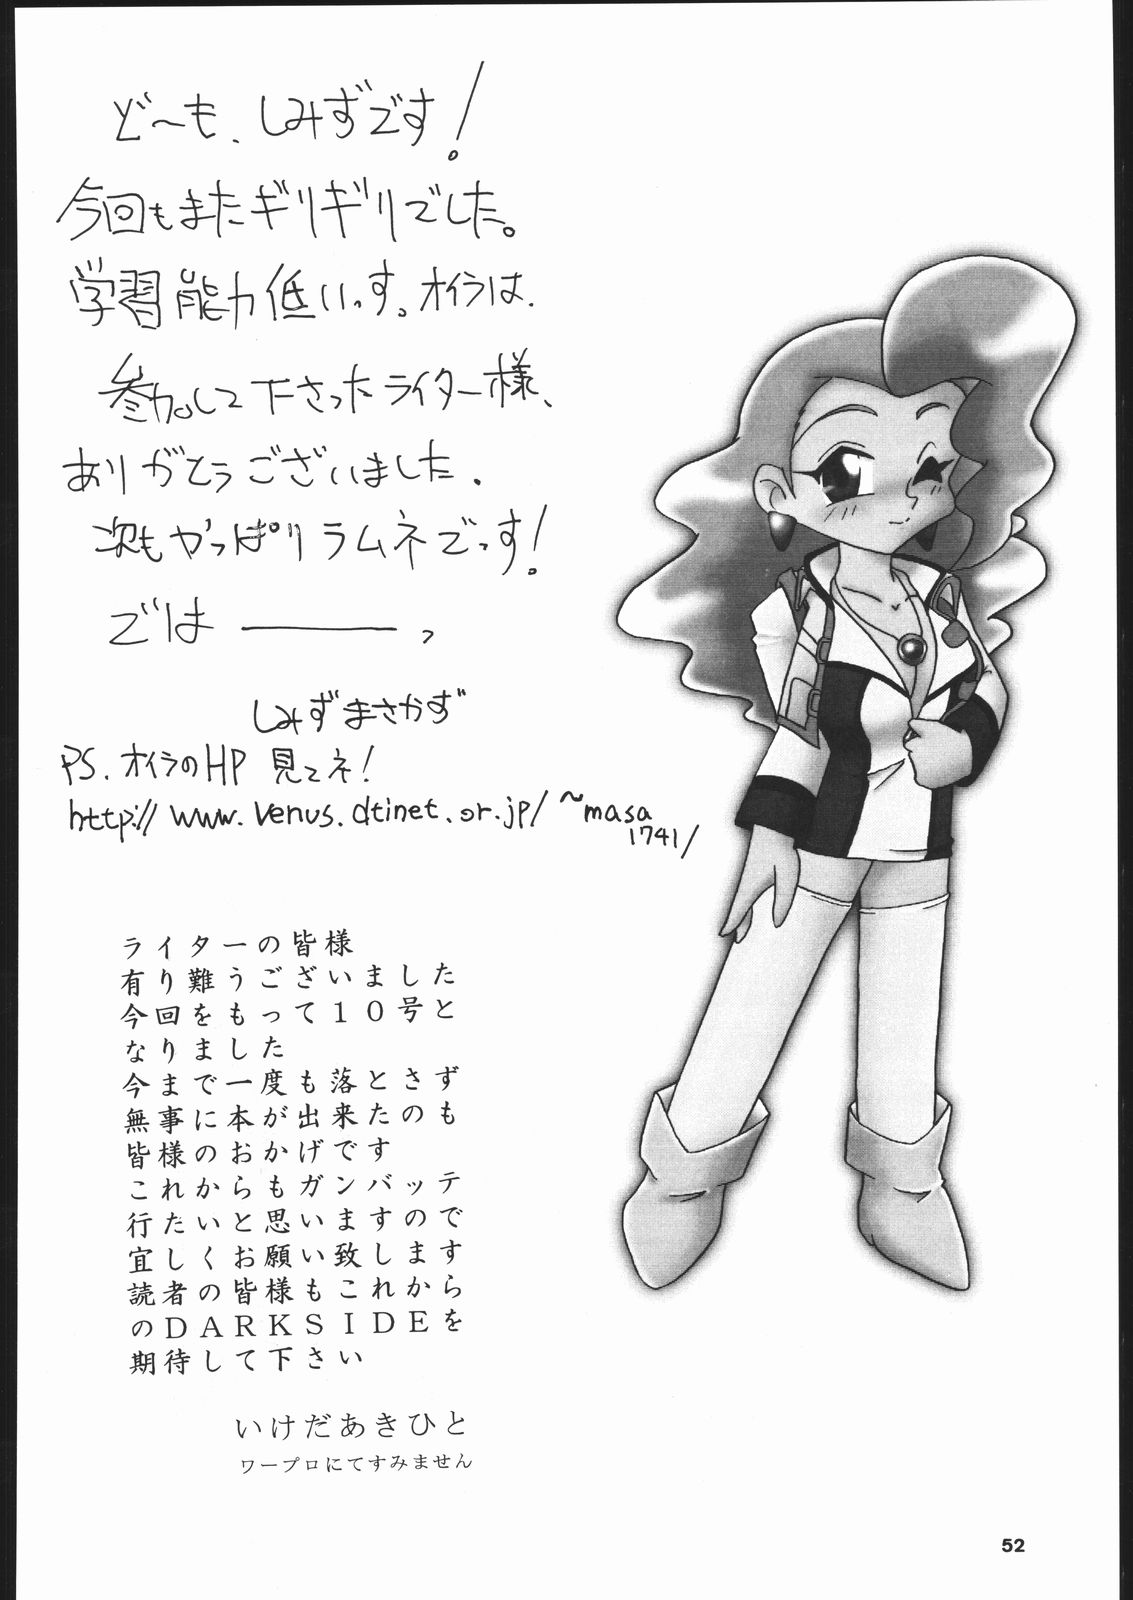 ど〜も、しみずです!
今回もまたギリギリでした。
学習能力低いっす。オイラは、
参加して下さったライター様、
ありがとうございました。
次もやっぱりラムネでっす!
では――――、
しみずまさかず
PS. オイラのHP 見てネ!
http://www.venus.dtinet.or.jp/~masa
1741/
ライターの皆様
有り難うございました
今回をもって10号と
なりました
今まで一度も落とさず
無事に本が出来たのも
皆様のおかげです
これからもガンバッテ
行たいと思いますので
宜しくお願い致します
読者の皆様もこれから
のDARKSIDEを
期待して下さい
いけだあきひと
ワープロにてすみません
52